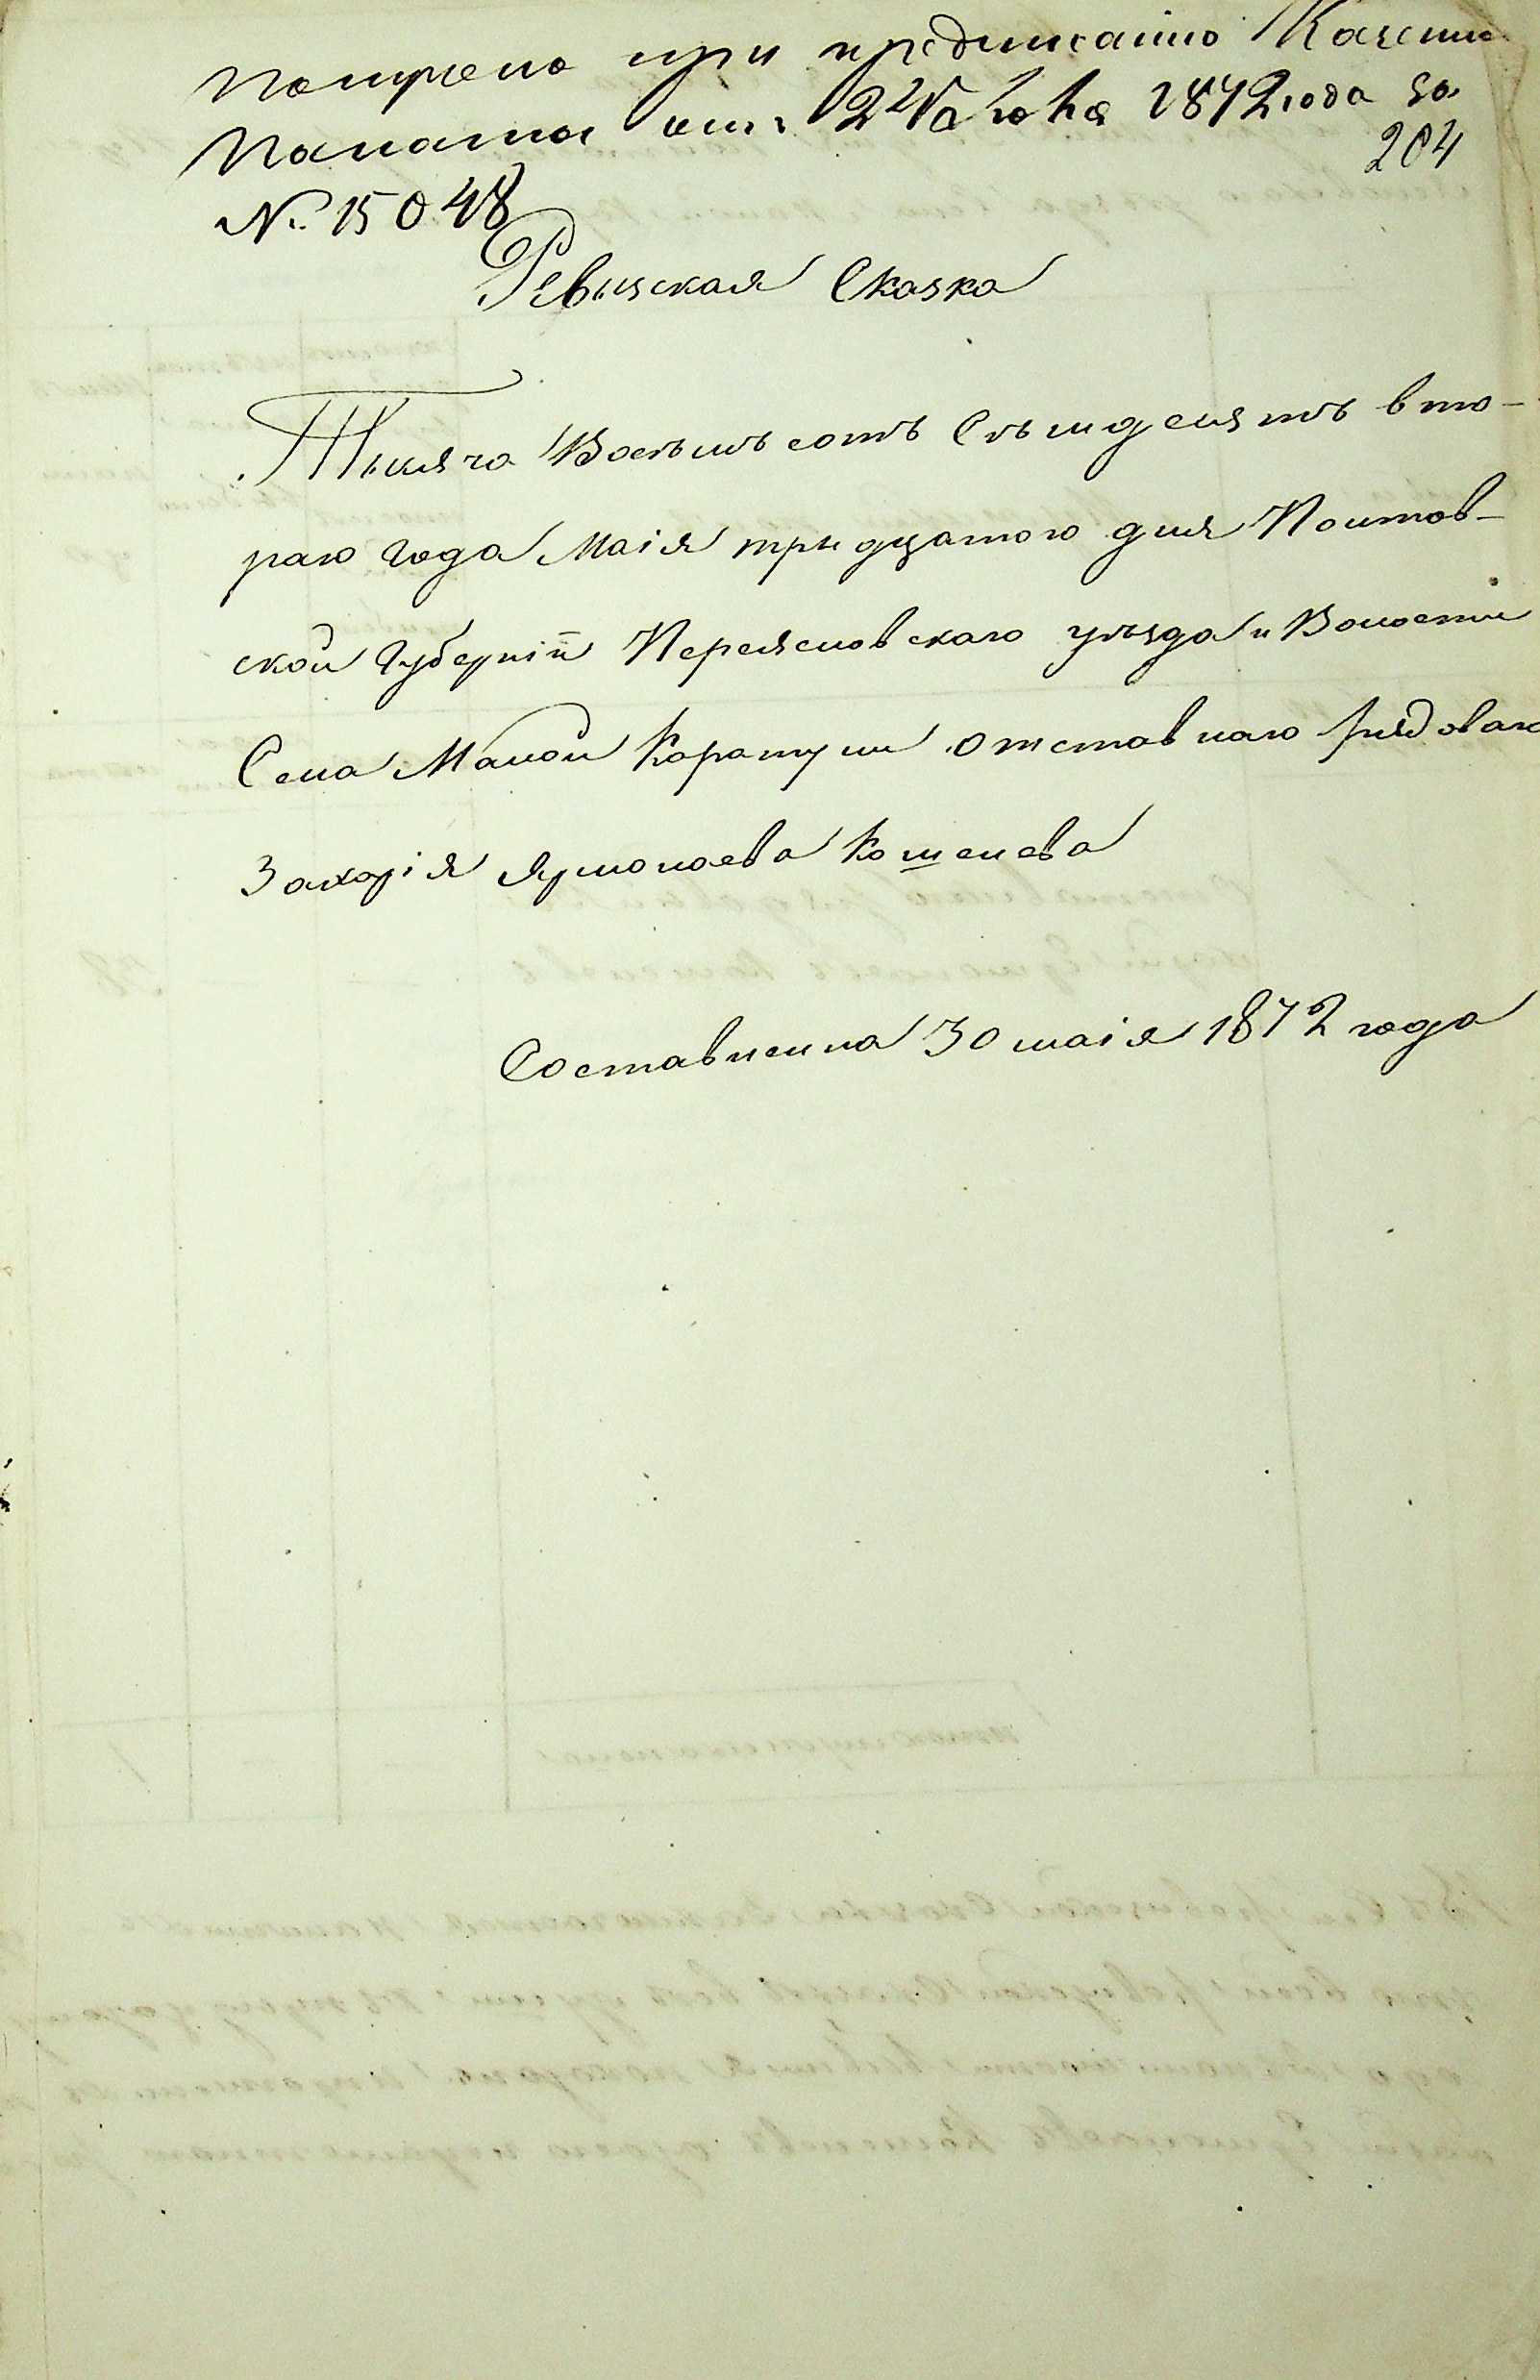 Получено при предписанію Казенно
Палаты отъ 24 Ноября 1872 года за
204
№ 15048
Ревизская Сказка
Тысяча Восѣмъ сотъ Сѣмдесятъ вто-
раго года Маія тридцатого дня Полтав-
ской Губерніи Переяслов скаго уѣзда и Волости
Села Малой Каратули отставнаго рядоваго
Захарія Ярмолаева Кошелева
Составленна 30 маія 1872 года